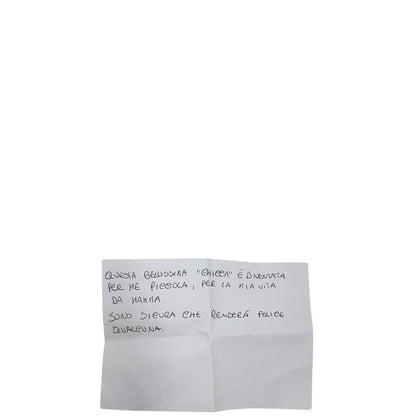 QUESTA BELLISSIMA "CHICCA" È DIVENTATA
PER ME PICCOLA, PER LA MIA VITA
DA MAMMA.
SONO SICURA CHE RENDERÀ FELICE
QUALCUNA.